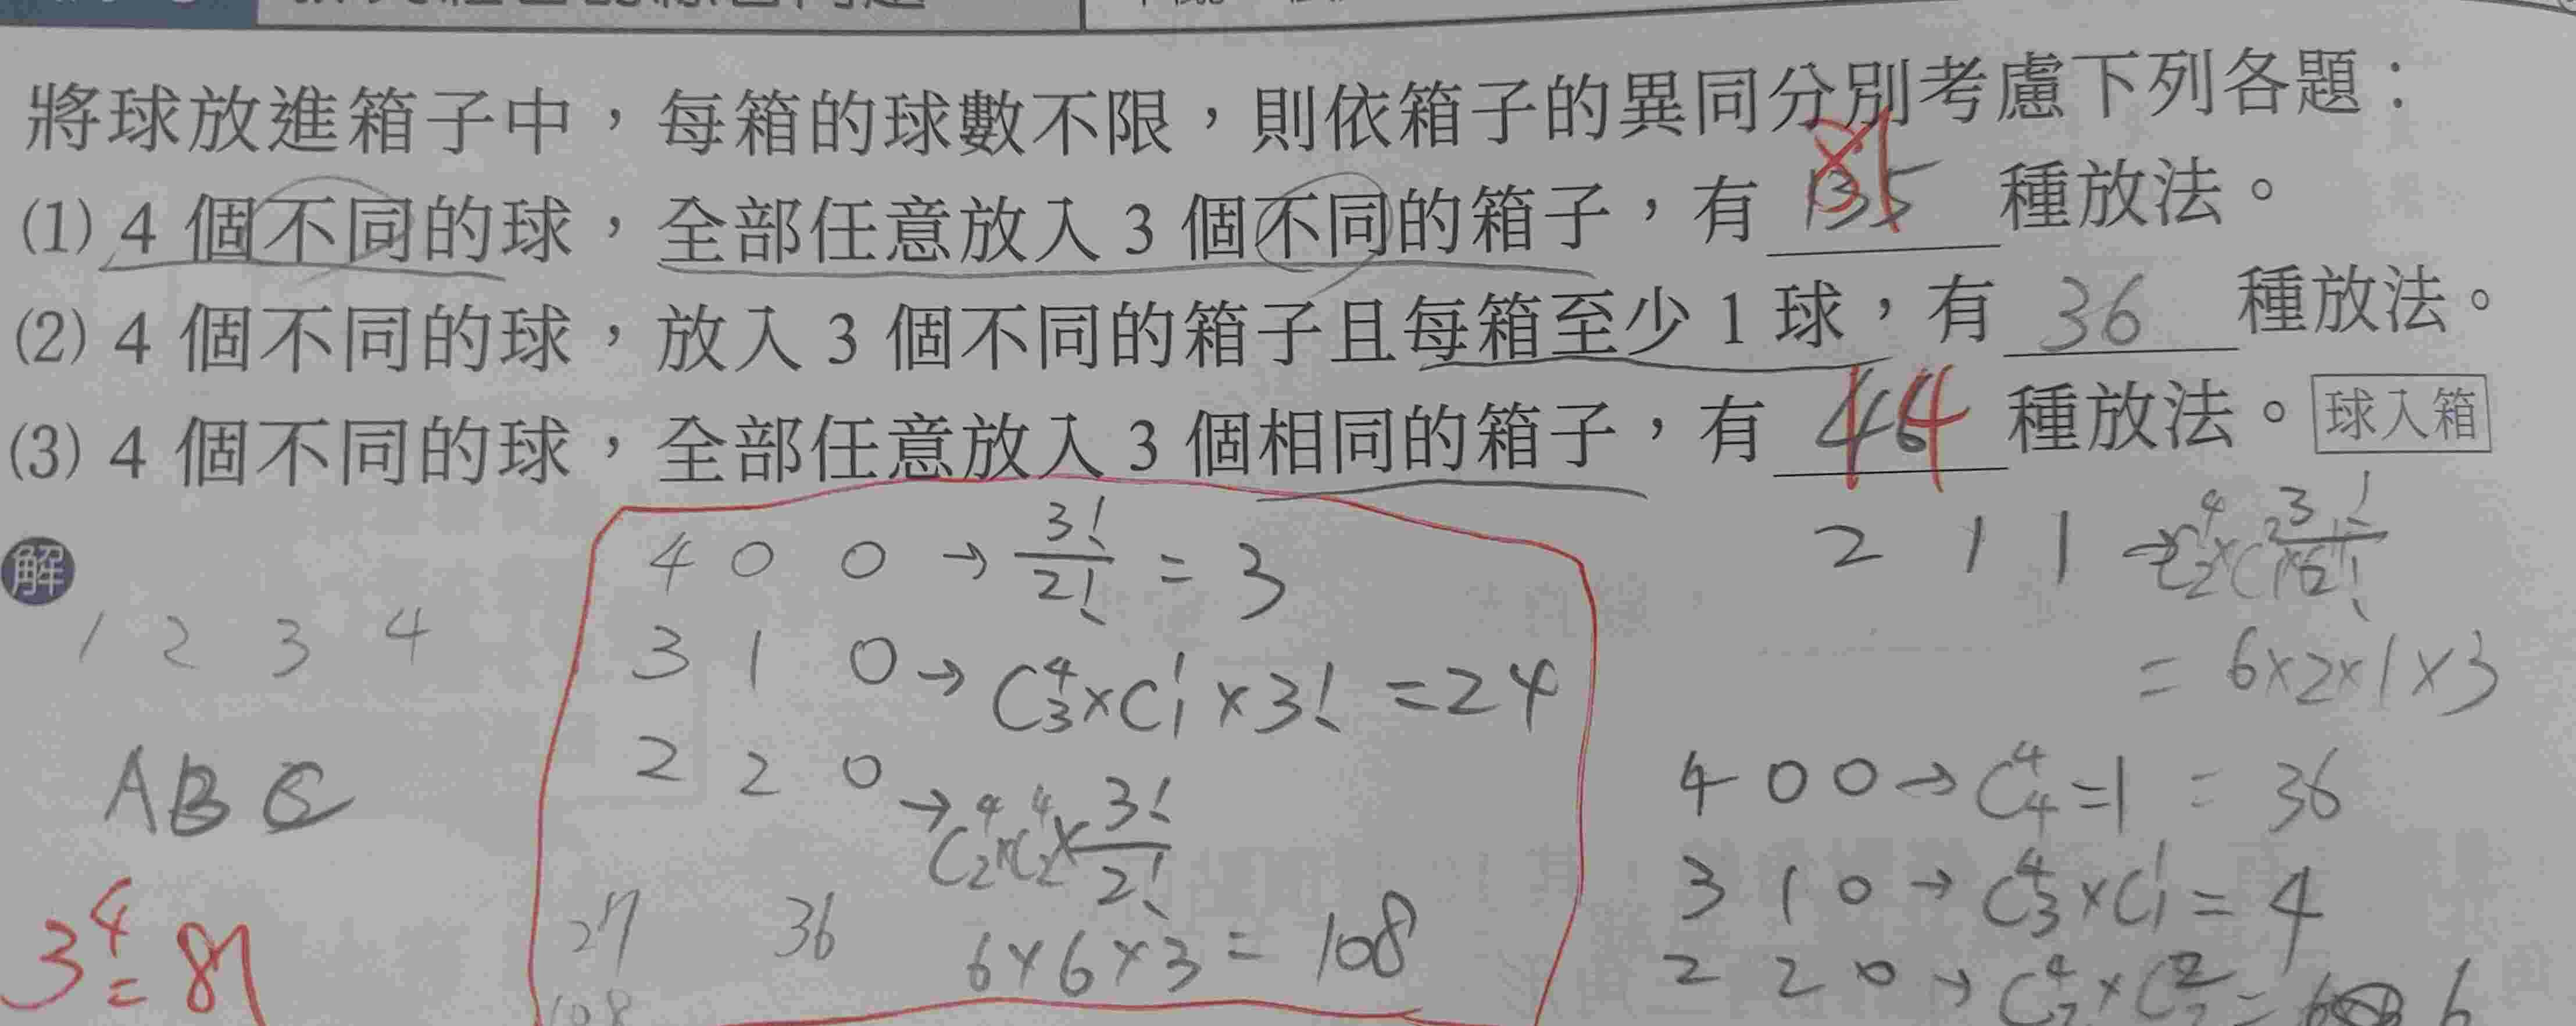 將球放進箱子中，每箱的球數不限，則依箱子的異同分別考慮下列各題：
(1) 4 個不同的球，全部任意放入 3 個不同的箱子，有 81 種放法。
(2) 4 個不同的球，放入 3 個不同的箱子且每箱至少 1 球，有 36 種放法。
(3) 4 個不同的球，全部任意放入 3 個相同的箱子，有 14 種放法。 球入箱
解
1 2 3 4
A B C
3⁴ = 81
4 0 0 → 3!/2! = 3
3 1 0 → C⁴₃ × C¹₁ × 3! = 24
2 2 0 → C⁴₂ × C⁴₂ × 3!/2!
27 36 6 × 6 × 3 = 108
108
2 1 1 →
= 6 × 2 × 1 × 3
= 36
4 0 0 → C⁴₄ = 1
3 1 0 → C⁴₃ × C¹₁ = 4
2 2 0 → C⁴₂ × C²₂ = 6